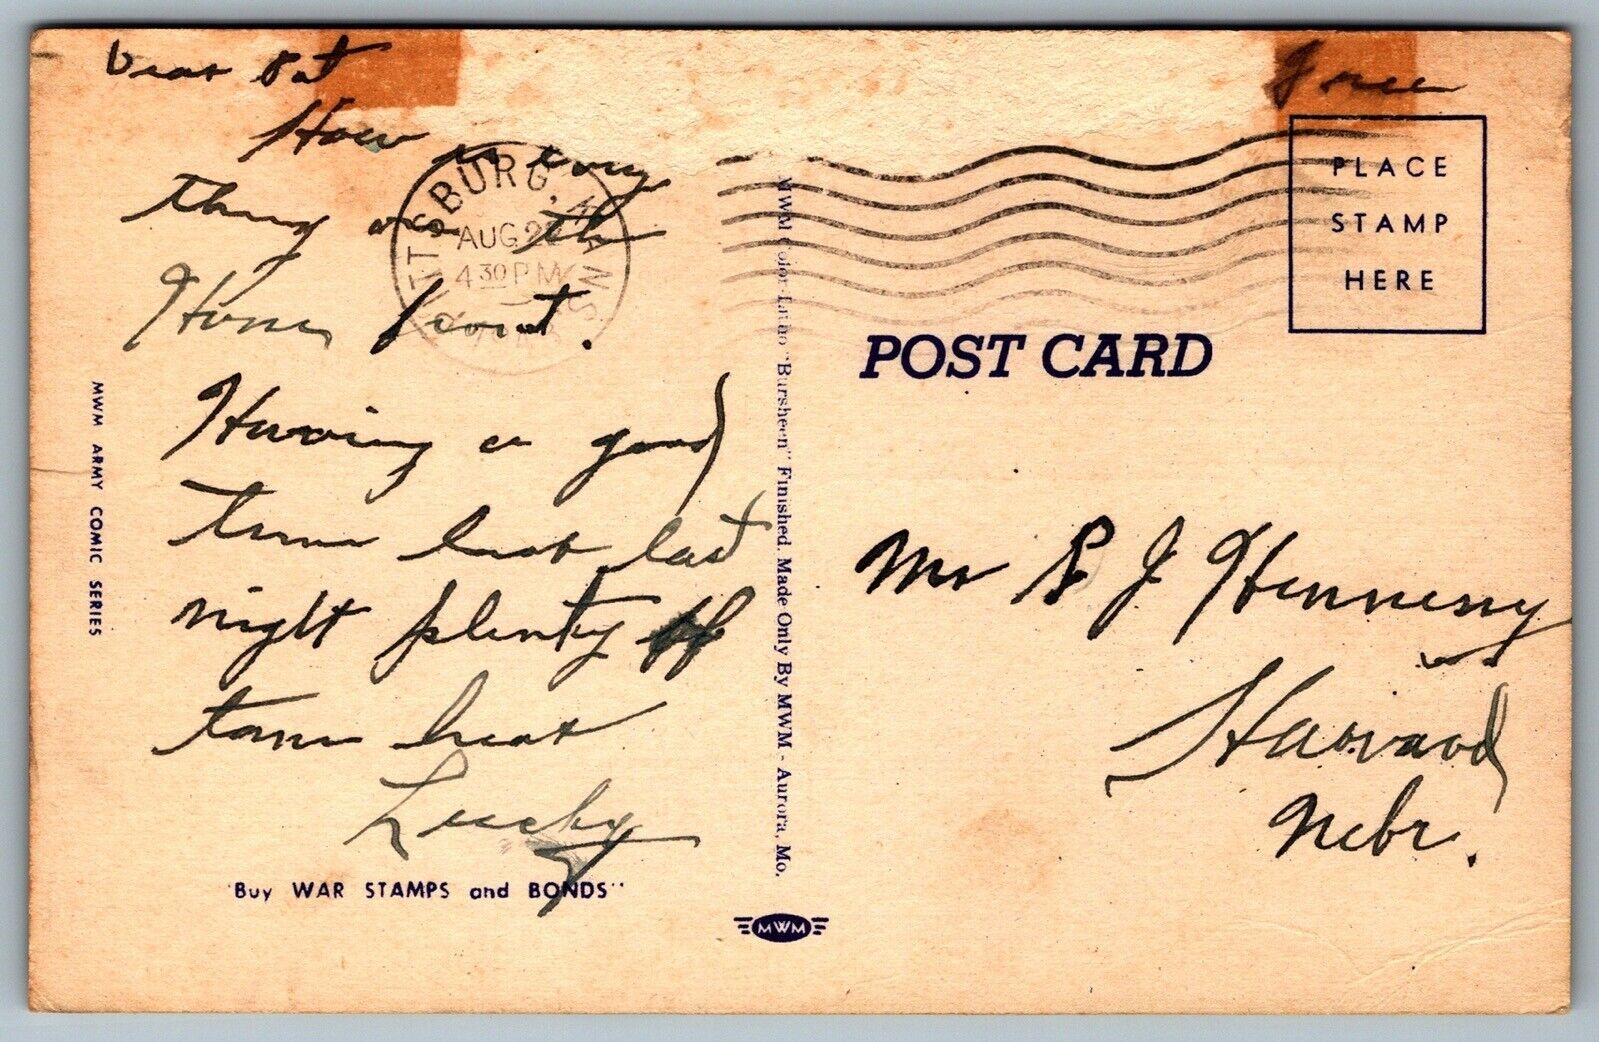 Dear Pat
How is every
thing on the
Home front.
Having a good
time here last
night plenty of
tame beer
Lucky
"Buy WAR STAMPS and BONDS"
MWM ARMY COMIC SERIES
BURG,
AUG 2
4 30 PM
MWM Color-Litho "Bursheen" Finished. Made Only By MWM - Aurora, Mo.
MWM
Free
PLACE
STAMP
HERE
POST CARD
Mr P J Hennessy
Harvard
Nebr.